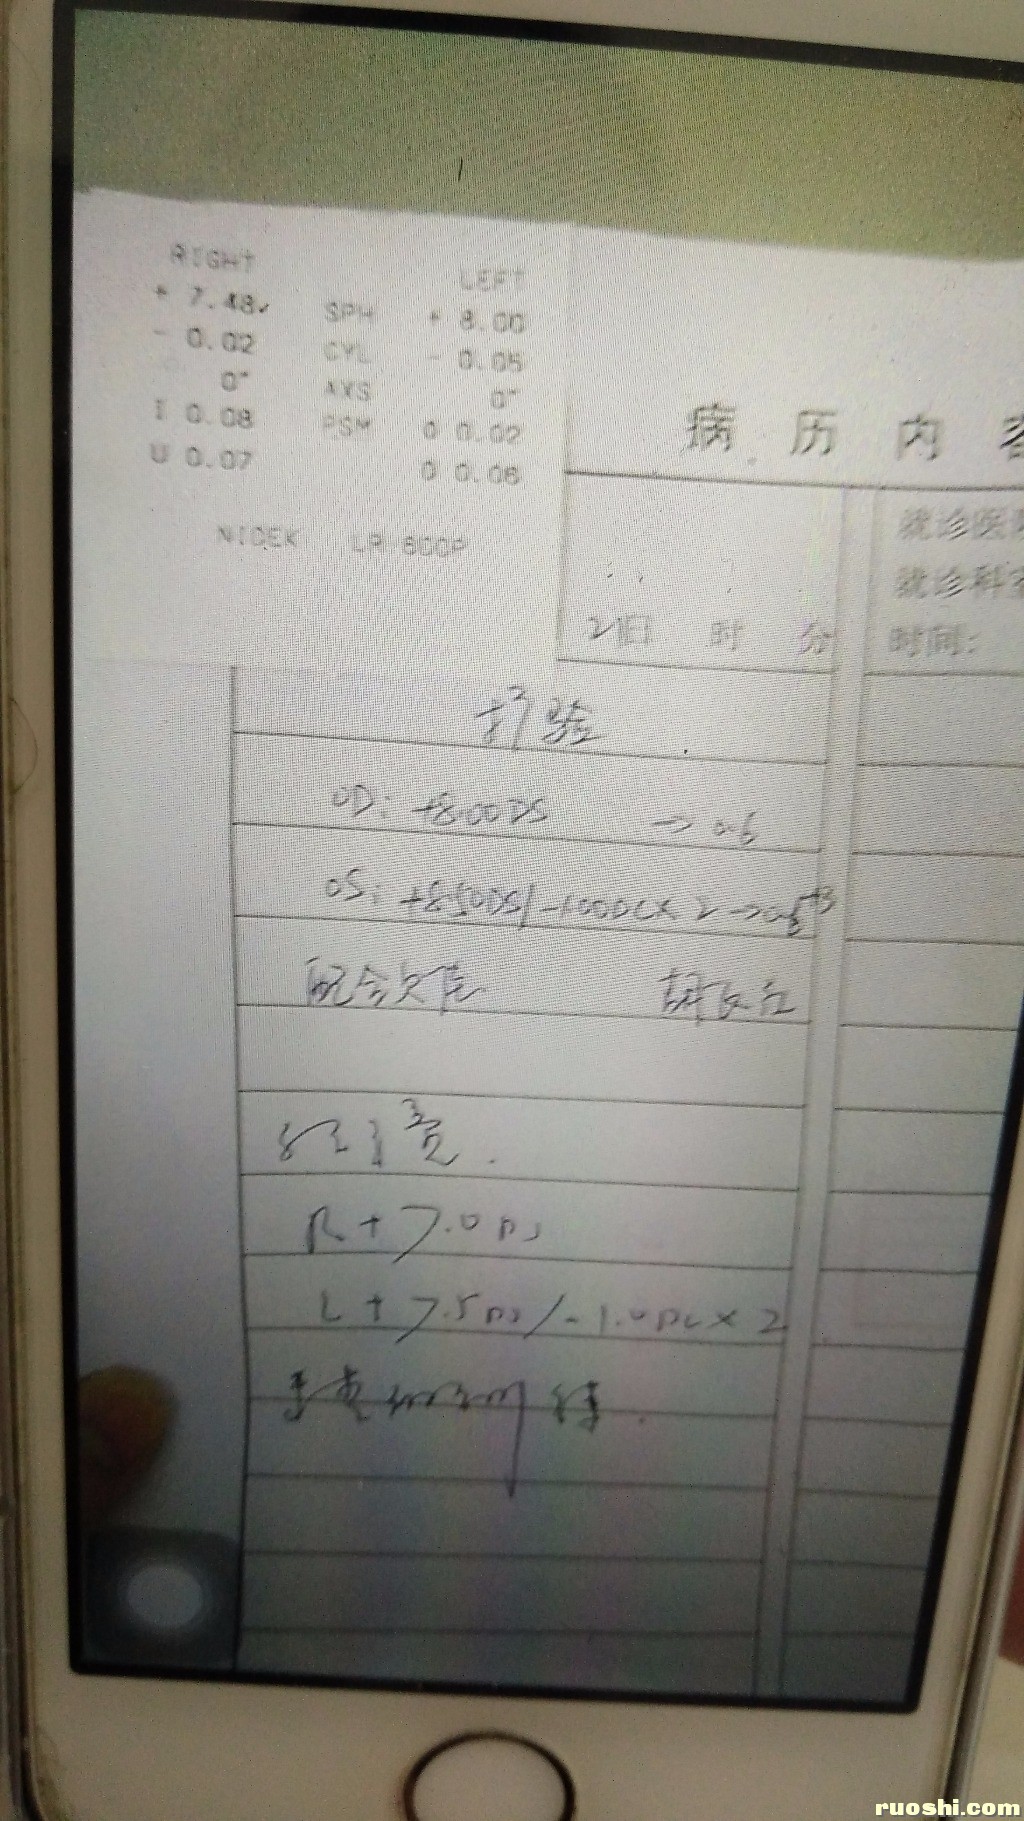 RIGHT LEFT
+ 7.48 SPH + 8.00
- 0.02 CYL - 0.05
0° AXS 0°
I 0.08 PSM O 0.02
U 0.07 O 0.06
NIDEK LR-600P
病 历 内 容
就诊医
就诊科室
时间:
21日 时 分
扩验
OD: +8.00DS → 0.6
OS: +8.50DS/-1.00DC×2→0.6
配合欠佳
R+7.0DS
L+7.5DS/-1.0DC×2
ruoshi.com